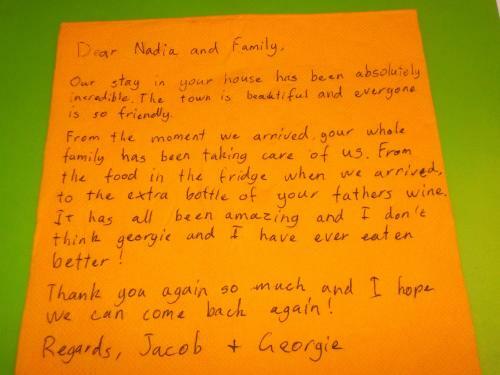 Dear Nadia and Family,
Our stay in your house has been absolutely
incredible. The town is beautiful and everyone
is so friendly.
From the moment we arrived, your whole
family has been taking care of us. From
the food in the fridge when we arrived,
to the extra bottle of your fathers wine.
It has all been amazing and I don't
think georgie and I have ever eaten
better!
Thank you again so much and I hope
we can come back again!
Regards, Jacob + Georgie